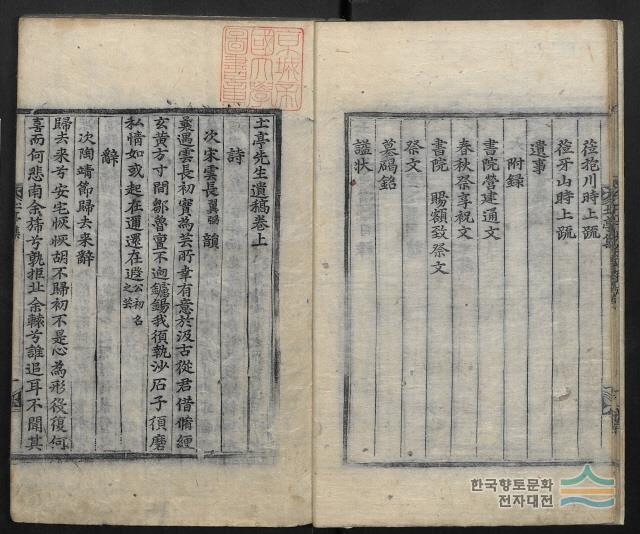 莅抱川時上䟽
莅牙山時上䟽
遺事
附録
書院營建通文
春秋祭享祝文
書院 賜額致祭文
祭文
墓碣銘
謚狀
京城帝
國大學
圖書章
土亭先生遺稿卷上
詩
次宋雲長翼弼韻
爨遇雲長初實為芸所幸有意於汲古從君借脩綆
玄黄方寸間鄒魯亶不逈鑢鍚我須執沙石子須磨
私情如或起在邇還在逈公初名之芸
辭
次陶靖節歸去来辭
歸去来兮安宅恢恢胡不歸初不是心為形役復何
喜而何悲南余斾兮孰拒北余轅兮誰追耳不聞其
한국향토문화
전자대전